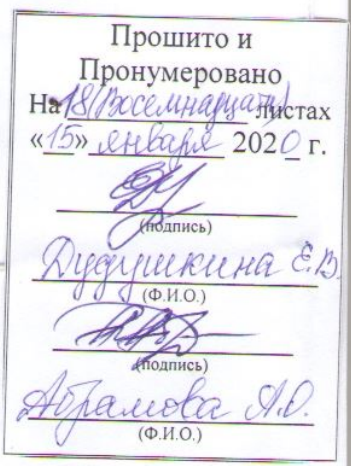 Прошито и
Пронумеровано
На 18 (Восемнадцати) листах
«15» января 2020 г.
(подпись)
Дудушкина Е.В.
(Ф.И.О.)
(подпись)
Абрамова А.О.
(Ф.И.О.)